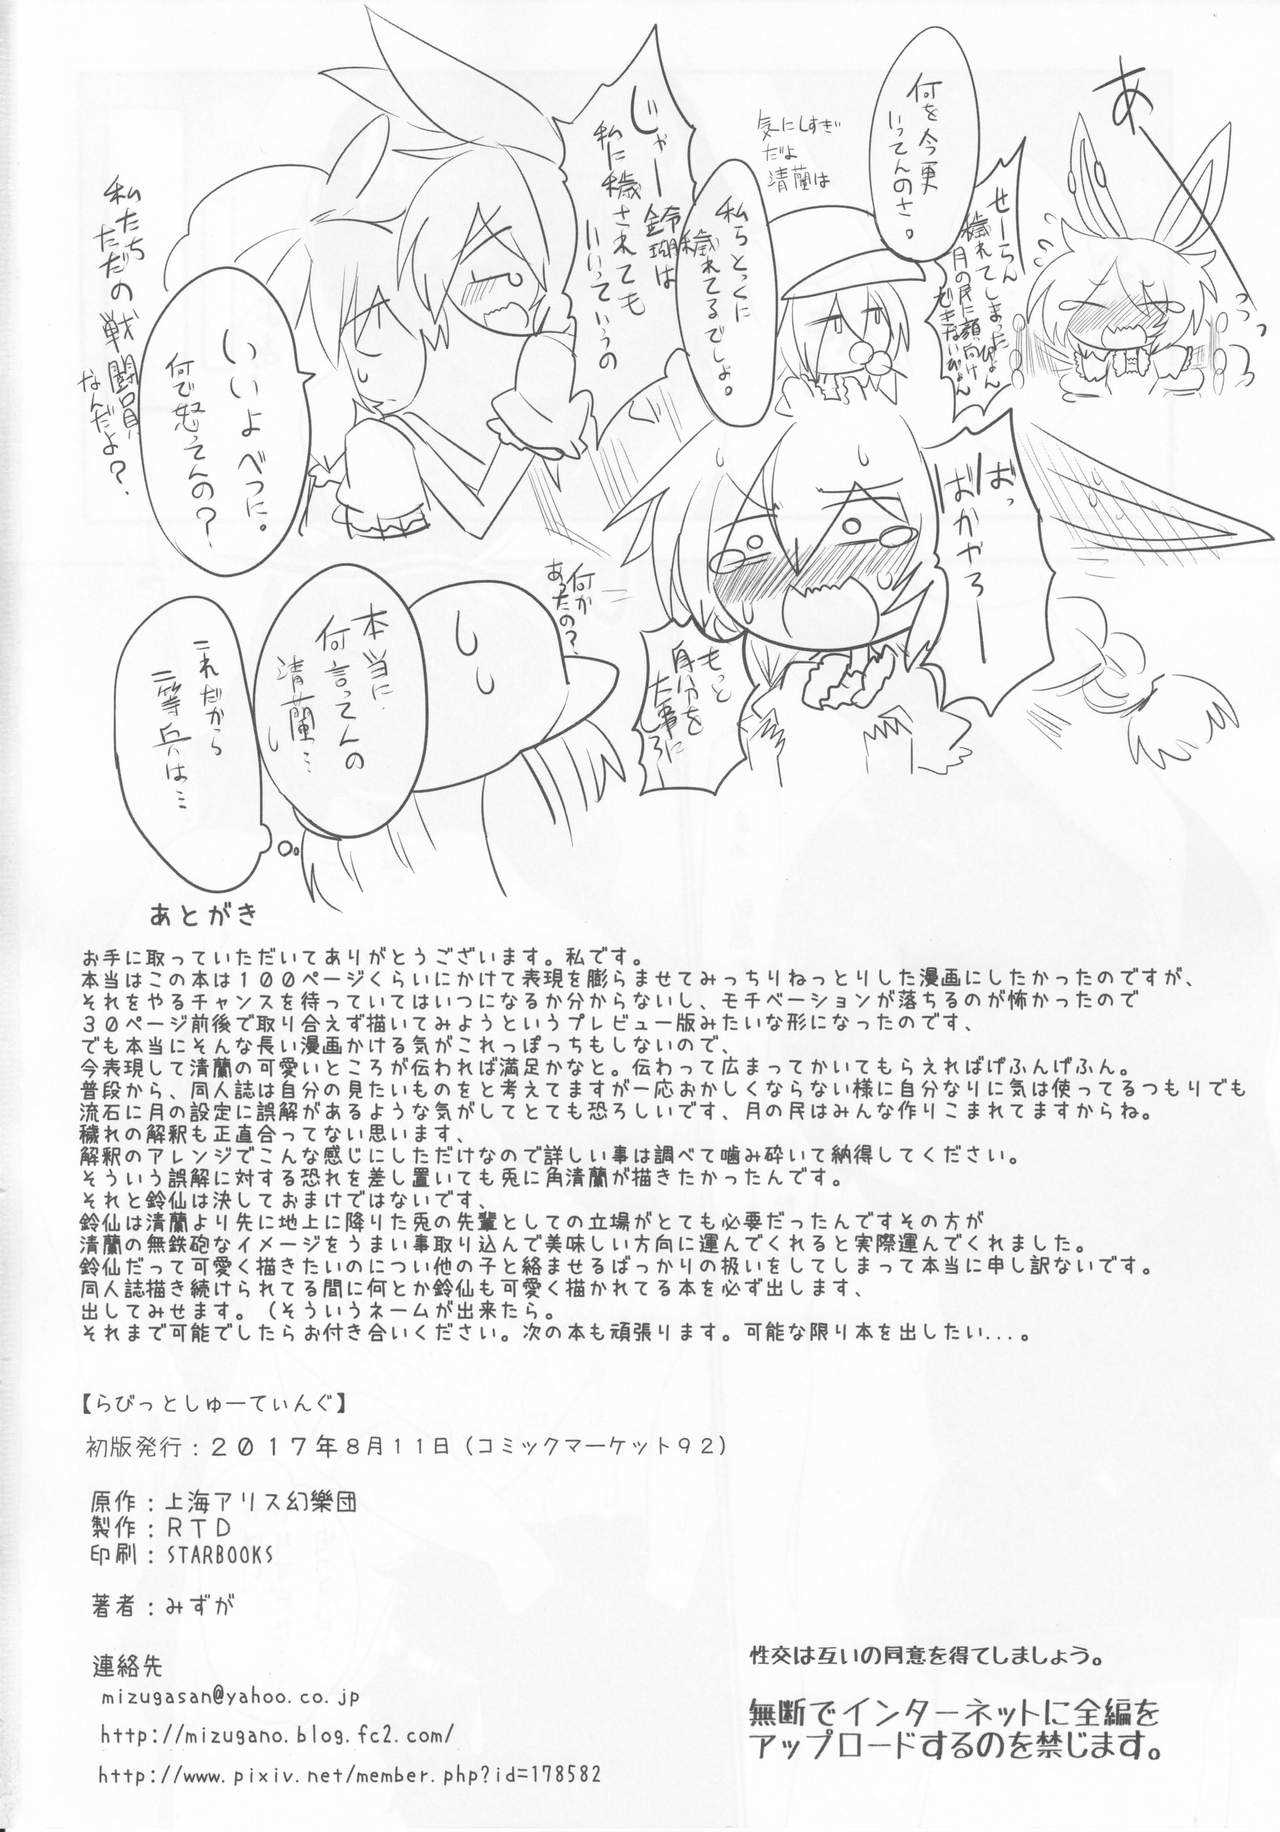 あーっ
せーらん
穢れてしまったぴょん
月の民に顔向け
できないぴょん
何を今更
いってんのさ。
気にしすぎ
だよ
清蘭は
私らとっくに
穢れてるでしょ。
じゃー鈴瑚は
私に穢されても
いいっていうの
いいよべつに。
何で怒ってんの？
私たち
ただの戦闘員
なんだよ？
ばっ
ばかやろーー
もっと
自分を
大事にしろ
何か
あったの？
本当に
何言ってんの
清蘭…
これだから
二等兵は…
あとがき
お手に取っていただいてありがとうございます。私です。
本当はこの本は１００ページくらいにかけて表現を膨らませてみっちりねっとりした漫画にしたかったのですが、
それをやるチャンスを待っていてはいつになるか分からないし、モチベーションが落ちるのが怖かったので
３０ページ前後で取り合えず描いてみようというプレビュー版みたいな形になったのです、
でも本当にそんな長い漫画かける気がこれっぽっちもしないので、
今表現して清蘭の可愛いところが伝われば満足かなと。伝わって広まってかいてもらえればげふんげふん。
普段から、同人誌は自分の見たいものをと考えてますが一応おかしくならない様に自分なりに気は使ってるつもりでも
流石に月の設定に誤解があるような気がしてとても恐ろしいです、月の民はみんな作りこまれてますからね。
穢れの解釈も正直合ってない思います、
解釈のアレンジでこんな感じにしただけなので詳しい事は調べて噛み砕いて納得してください。
そういう誤解に対する恐れを差し置いても兎に角清蘭が描きたかったんです。
それと鈴仙は決しておまけではないです、
鈴仙は清蘭より先に地上に降りた兎の先輩としての立場がとても必要だったんですその方が
清蘭の無鉄砲なイメージをうまい事取り込んで美味しい方向に運んでくれると実際運んでくれました。
鈴仙だって可愛く描きたいのについ他の子と絡ませるばっかりの扱いをしてしまって本当に申し訳ないです。
同人誌描き続けられてる間に何とか鈴仙も可愛く描かれてる本を必ず出します、
出してみせます。（そういうネームが出来たら。
それまで可能でしたらお付き合いください。次の本も頑張ります。可能な限り本を出したい...。
【らびっとしゅーてぃんぐ】
初版発行：２０１７年８月１１日（コミックマーケット９２）
原作：上海アリス幻樂団
製作：ＲＴＤ
印刷：STARBOOKS
著者：みずが
連絡先
mizugasan@yahoo.co.jp
http://mizugano.blog.fc2.com/
http://www.pixiv.net/member.php?id=178582
性交は互いの同意を得てしましょう。
無断でインターネットに全編を
アップロードするのを禁じます。